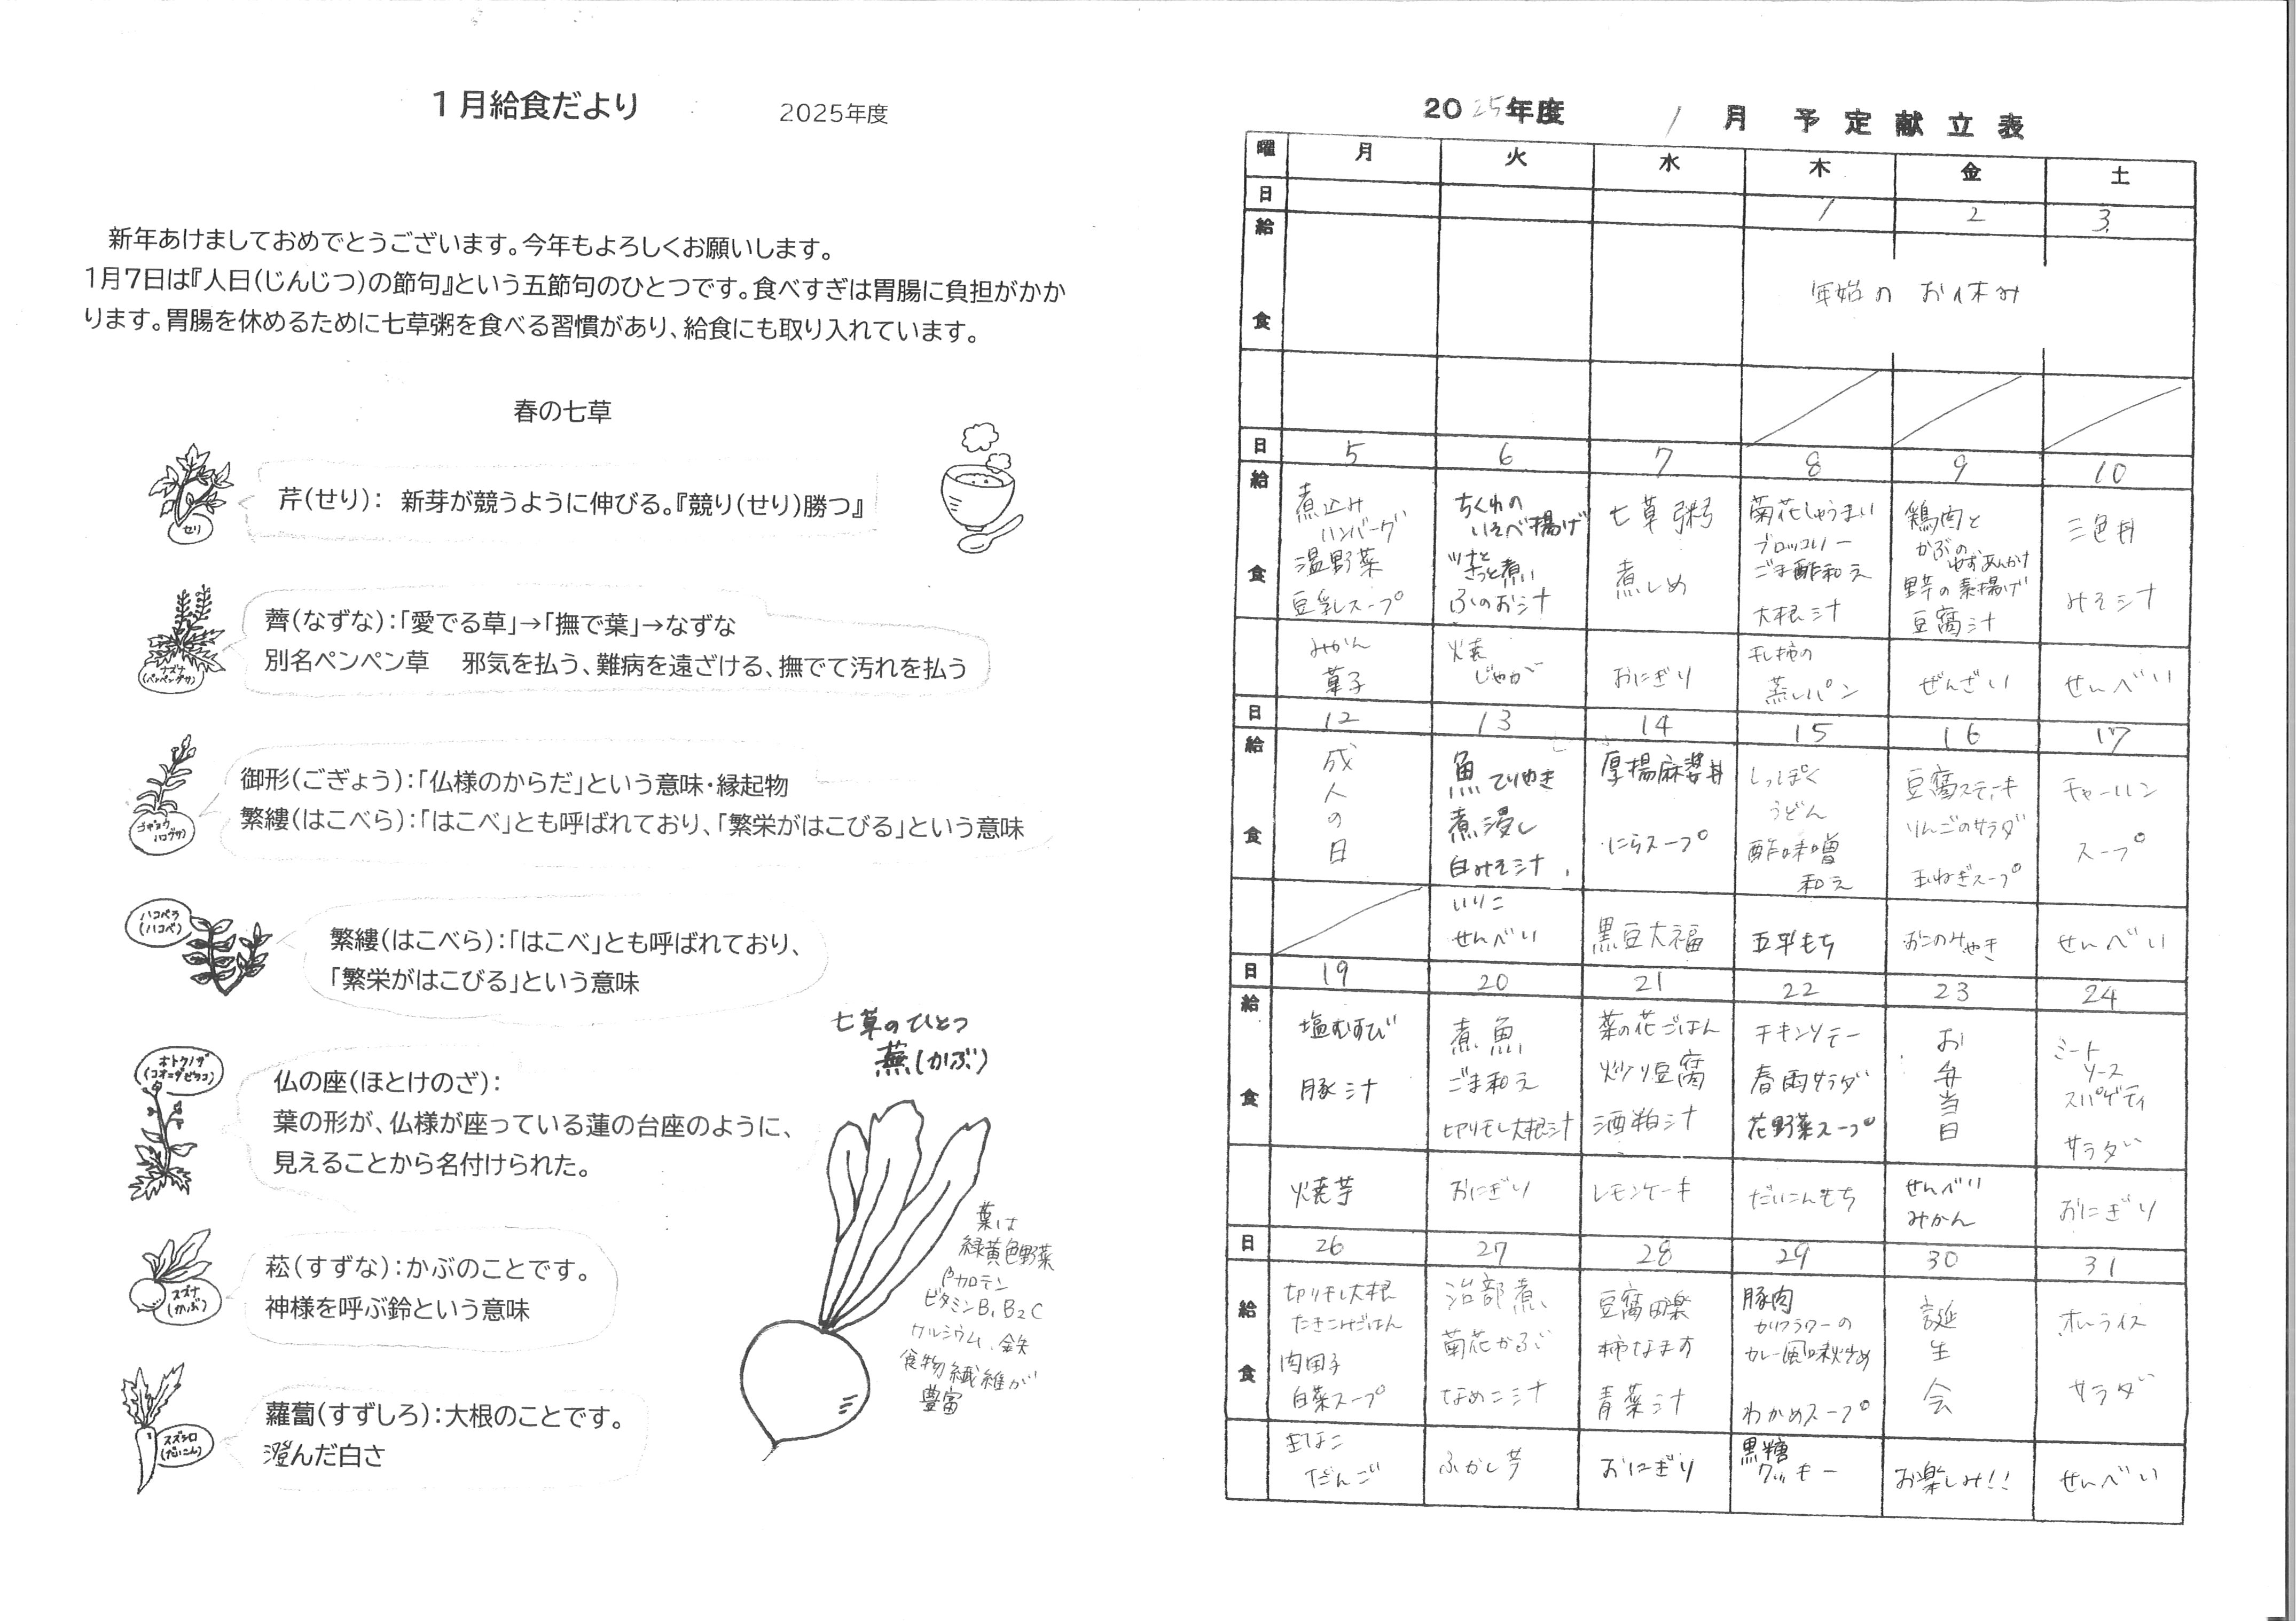 1月給食だより
2025年度
新年あけましておめでとうございます。今年もよろしくお願いします。
1月7日は『人日(じんじつ)の節句』という五節句のひとつです。食べすぎは胃腸に負担がかか
ります。胃腸を休めるために七草粥を食べる習慣があり、給食にも取り入れています。
春の七草
セリ
芹(せり): 新芽が競うように伸びる。『競り(せり)勝つ』
ナズナ
(ペンペングサ)
薺(なずな):「愛でる草」→「撫で葉」→なずな
別名ペンペン草 邪気を払う、難病を遠ざける、撫でて汚れを払う
ゴギョウ
ハハコグサ
御形(ごぎょう):「仏様のからだ」という意味・縁起物
繁縷(はこべら):「はこべ」とも呼ばれており、「繁栄がはこびる」という意味
ハコベラ
(ハコベ)
繁縷(はこべら):「はこべ」とも呼ばれており、
「繁栄がはこびる」という意味
ホトケノザ
(コオニタビラコ)
仏の座(ほとけのざ):
葉の形が、仏様が座っている蓮の台座のように、
見えることから名付けられた。
スズナ
(かぶ)
菘(すずな):かぶのことです。
神様を呼ぶ鈴という意味
スズシロ
(だいこん)
蘿蔔(すずしろ):大根のことです。
澄んだ白さ
七草のひとつ
蕪(かぶ)
葉は
緑黄色野菜
βカロテン
ビタミンB₁B₂C
カルシウム、鉄
食物繊維が
豊富
2025年度 1月 予定献立表
曜 月 火 水 木 金 土
日 1 2 3
給食
年始のお休み
日 5 6 7 8 9 10
給食
煮込み
ハンバーグ
温野菜
豆乳スープ
ちくわの
いそべ揚げ
ツナと
さっと煮
ふのお汁
七草粥
煮しめ
菊花しゅうまい
ブロッコリー
ごま酢和え
大根汁
鶏肉と
かぶの
ゆずあんかけ
里芋の素揚げ
豆腐汁
三色丼
みそ汁
みかん
菓子
焼
じゃが
おにぎり
干し柿の
蒸しパン
ぜんざい
せんべい
日 12 13 14 15 16 17
給食
成人の日
魚てりやき
煮浸し
白みそ汁
厚揚麻婆丼
にらスープ
しっぽく
うどん
酢味噌
和え
豆腐ステーキ
りんごのサラダ
玉ねぎスープ
チャーハン
スープ
いりこ
せんべい
黒豆大福
五平もち
おこのみやき
せんべい
日 19 20 21 22 23 24
給食
塩むすび
豚汁
煮魚
ごま和え
切り干し大根汁
菜の花ごはん
炒り豆腐
酒粕汁
チキンソテー
春雨サラダ
花野菜スープ
お弁当日
ミート
ソース
スパゲティ
サラダ
焼芋
おにぎり
レモンケーキ
だいこんもち
せんべい
みかん
おにぎり
日 26 27 28 29 30 31
給食
切り干し大根
たきこみごはん
肉団子
白菜スープ
治部煮
菊花かぶ
なめこ汁
豆腐田楽
柿なます
青菜汁
豚肉
カリフラワーの
カレー風味炒め
わかめスープ
誕生会
カレーライス
サラダ
きなこ
だんご
ふかし芋
おにぎり
黒糖
クッキー
お楽しみ!!
せんべい